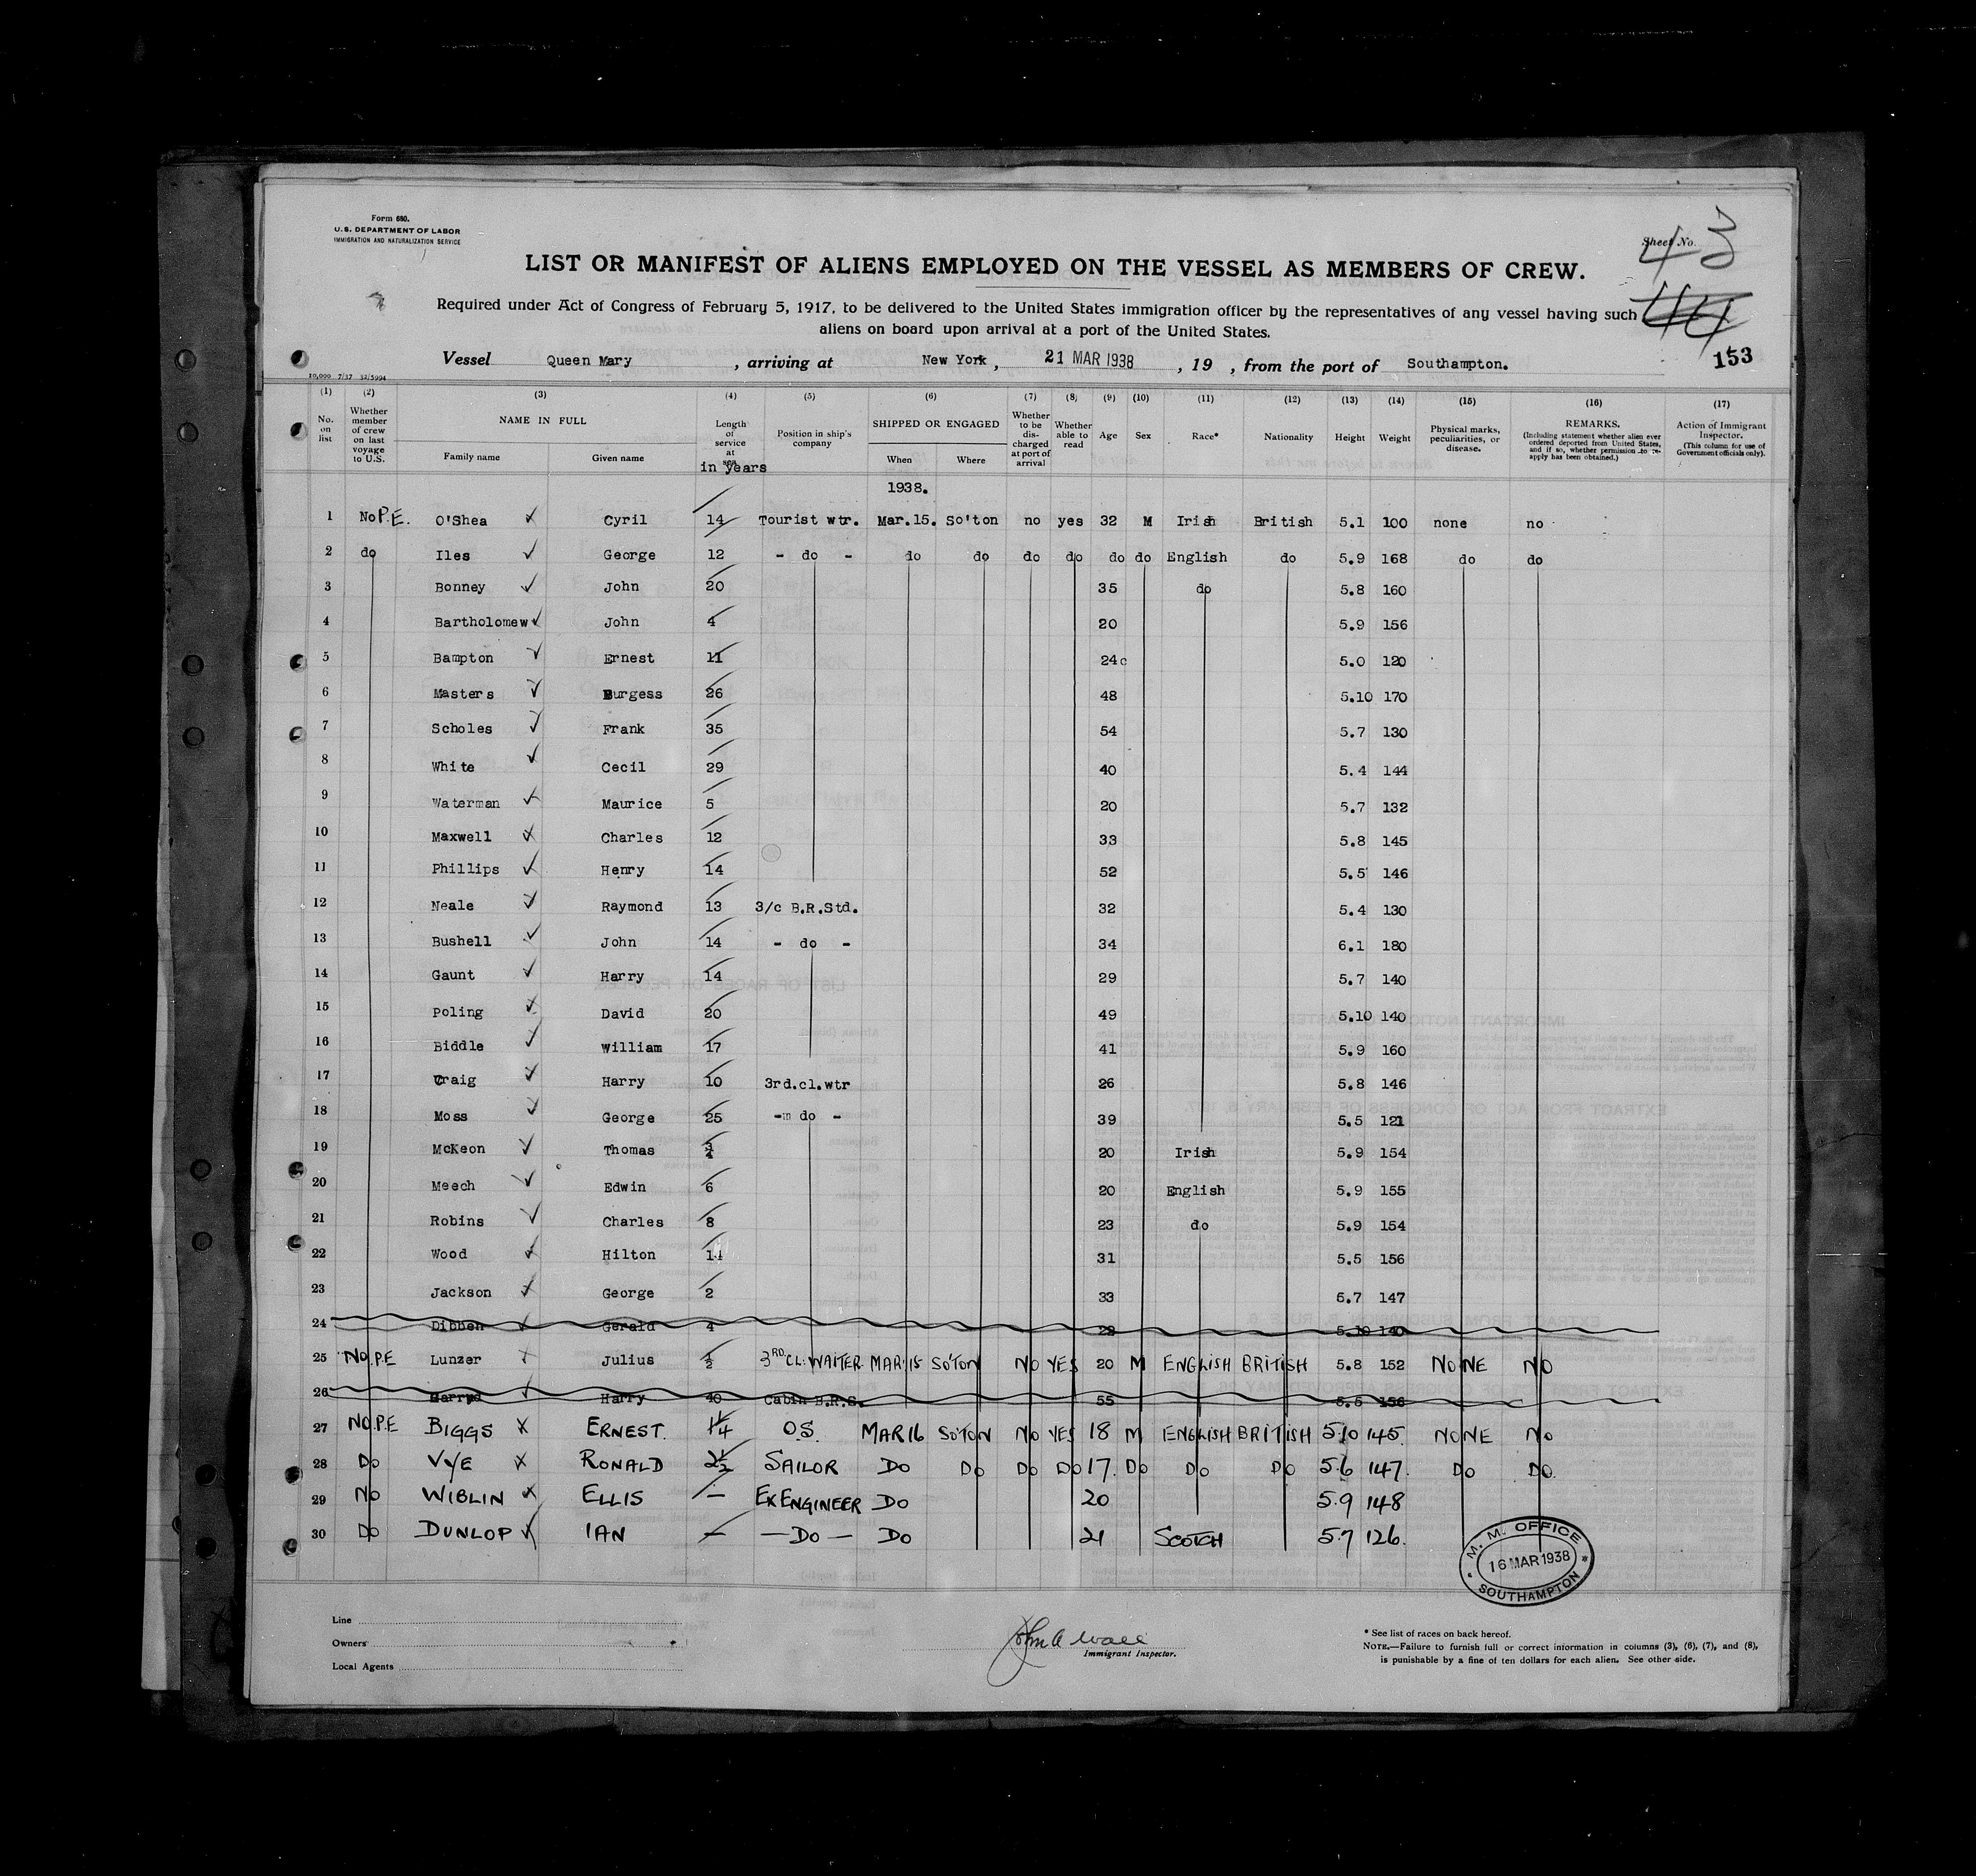 Form 680.
U.S. DEPARTMENT OF LABOR
IMMIGRATION AND NATURALIZATION SERVICE
Sheet No. 43
44
LIST OR MANIFEST OF ALIENS EMPLOYED ON THE VESSEL AS MEMBERS OF CREW.
Required under Act of Congress of February 5, 1917, to be delivered to the United States immigration officer by the representatives of any vessel having such
aliens on board upon arrival at a port of the United States.
Vessel Queen Mary, arriving at New York, 21 MAR 1938, 19 , from the port of Southampton.
153
10,000 7/37 32/5994
(1) No. on list
(2) Whether member of crew on last voyage to U.S.
(3) NAME IN FULL Family name Given name
(4) Length of service at sea in years
(5) Position in ship's company
(6) SHIPPED OR ENGAGED When Where
(7) Whether to be discharged at port of arrival
(8) Whether able to read
(9) Age
(10) Sex
(11) Race*
(12) Nationality
(13) Height
(14) Weight
(15) Physical marks, peculiarities, or disease.
(16) REMARKS. (Including statement whether alien ever ordered deported from United States, and if so, whether permission to re-apply has been obtained.)
(17) Action of Immigrant Inspector. (This column for use of Government officials only).
1938.
1 No P.E. O'Shea Cyril 14 Tourist wtr. Mar.15. So'ton no yes 32 M Irish British 5.1 100 none no
2 do Iles George 12 - do - do do do do do do English do 5.9 168 do do
3 Bonney John 20 35 do 5.8 160
4 Bartholomew John 4 20 5.9 156
5 Bampton Ernest 11 24c 5.0 120
6 Masters Burgess 26 48 5.10 170
7 Scholes Frank 35 54 5.7 130
8 White Cecil 29 40 5.4 144
9 Waterman Maurice 5 20 5.7 132
10 Maxwell Charles 12 33 5.8 145
11 Phillips Henry 14 52 5.5 146
12 Neale Raymond 13 3/c B.R.Std. 32 5.4 130
13 Bushell John 14 - do - 34 6.1 180
14 Gaunt Harry 14 29 5.7 140
15 Poling David 20 49 5.10 140
16 Biddle William 17 41 5.9 160
17 Craig Harry 10 3rd.cl.wtr 26 5.8 146
18 Moss George 25 - do - 39 5.5 121
19 McKeon Thomas 3/4 20 Irish 5.9 154
20 Meech Edwin 6 20 English 5.9 155
21 Robins Charles 8 23 do 5.9 154
22 Wood Hilton 14 31 5.5 156
23 Jackson George 2 33 5.7 147
24 Dibben Gerald 4 22 5.10 140
25 NO P.E Lunzer Julius 1/2 3RD CL. WAITER MAR 15 SO'TON NO YES 20 M ENGLISH BRITISH 5.8 152 NONE NO
26 Harry 40 Cabin B.R.S. 55 5.5 156
27 NO P.E BIGGS ERNEST. 1 1/4 O.S. MAR 16 SO'TON NO YES 18 M ENGLISH BRITISH 5.10 145. NONE NO
28 DO VYE RONALD 2 1/2 SAILOR DO DO DO DO 17. DO DO DO 5.6 147. DO DO.
29 NO WIBLIN ELLIS — EX ENGINEER DO 20 5.9 148
30 DO DUNLOP IAN — — DO — DO 21 SCOTCH 5.7 126.
M. M. OFFICE
16 MAR 1938
SOUTHAMPTON
Line
Owners
Local Agents
John A Wall
Immigrant Inspector.
* See list of races on back hereof.
NOTE.—Failure to furnish full or correct information in columns (3), (6), (7), and (8),
is punishable by a fine of ten dollars for each alien. See other side.